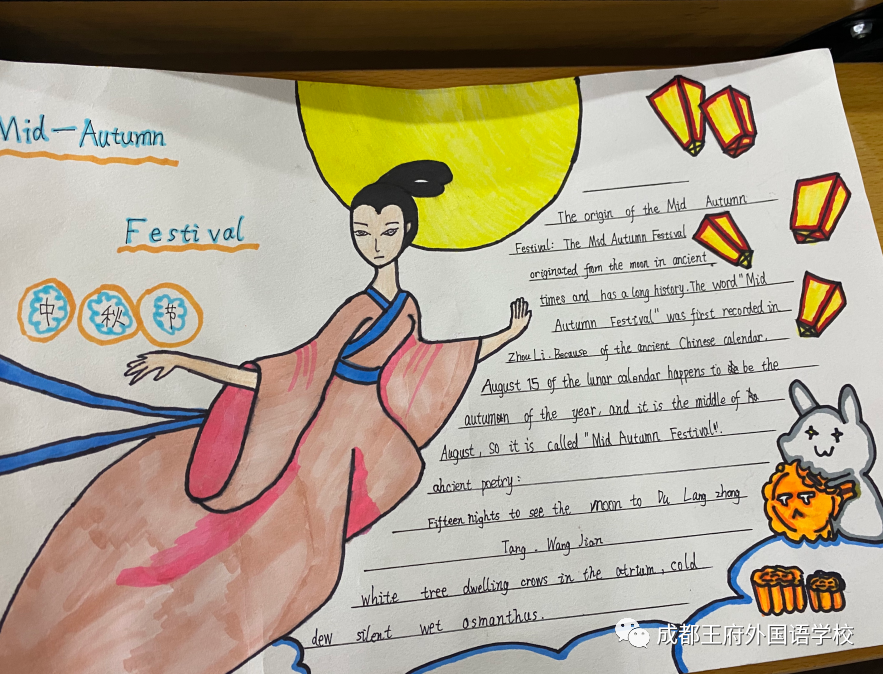 Mid-Autumn
Festival
中秋节
The origin of the Mid Autumn
Festival: The Mid Autumn Festival
originated from the moon in ancient
times and has a long history. The word "Mid
Autumn Festival" was first recorded in
Zhou Li. Because of the ancient Chinese calendar,
August 15 of the lunar calendar happens to be the
autumn of the year, and it is the middle of
August, so it is called "Mid Autumn Festival".
ancient poetry:
Fifteen nights to see the moon to Du Lang zhong
Tang. Wang Jian
white tree dwelling crows in the atrium, cold
dew silent wet osmanthus.
成都王府外国语学校